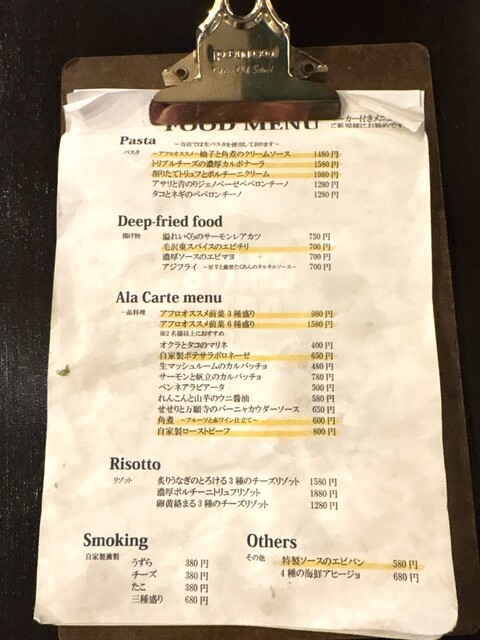 FOOD MENU
ーカー付きメニュー
ご新規様にお勧めです
Pasta
パスタ
～当店では生パスタを使用しております～
～アフロオススメ～柚子と角煮のクリームソース 1480円
トリプルチーズの濃厚カルボナーラ 1580円
削りたてトリュフとポルチーニクリーム 1980円
アサリと青のりジェノベーゼペペロンチーノ 1280円
タコとネギのペペロンチーノ 1280円
Deep-fried food
揚げ物
溢れいくらのサーモンレアカツ 750円
毛沢東スパイスのエビチリ 700円
濃厚ソースのエビマヨ 700円
アジフライ ～里芋と燻製たくあんのタルタルソース～ 700円
Ala Carte menu
一品料理
アフロオススメ前菜3種盛り 980円
アフロオススメ前菜6種盛り 1580円
※2名様以上におすすめ
オクラとタコのマリネ 400円
自家製ポテサラボロネーゼ 650円
生マッシュルームのカルパッチョ 480円
サーモンと帆立のカルパッチョ 780円
ペンネアラビアータ 500円
れんこんと山芋のウニ醤油 580円
せせりと万願寺のバーニャカウダーソース 650円
角煮 ～フルーツと赤ワイン仕立て～ 600円
自家製ローストビーフ 800円
Risotto
リゾット
炙りうなぎのとろける3種のチーズリゾット 1580円
濃厚ポルチーニトリュフリゾット 1880円
卵黄絡まる3種のチーズリゾット 1280円
Smoking
自家製燻製
うずら 380円
チーズ 380円
たこ 380円
三種盛り 680円
Others
その他
特製ソースのエビパン 580円
4種の海鮮アヒージョ 680円